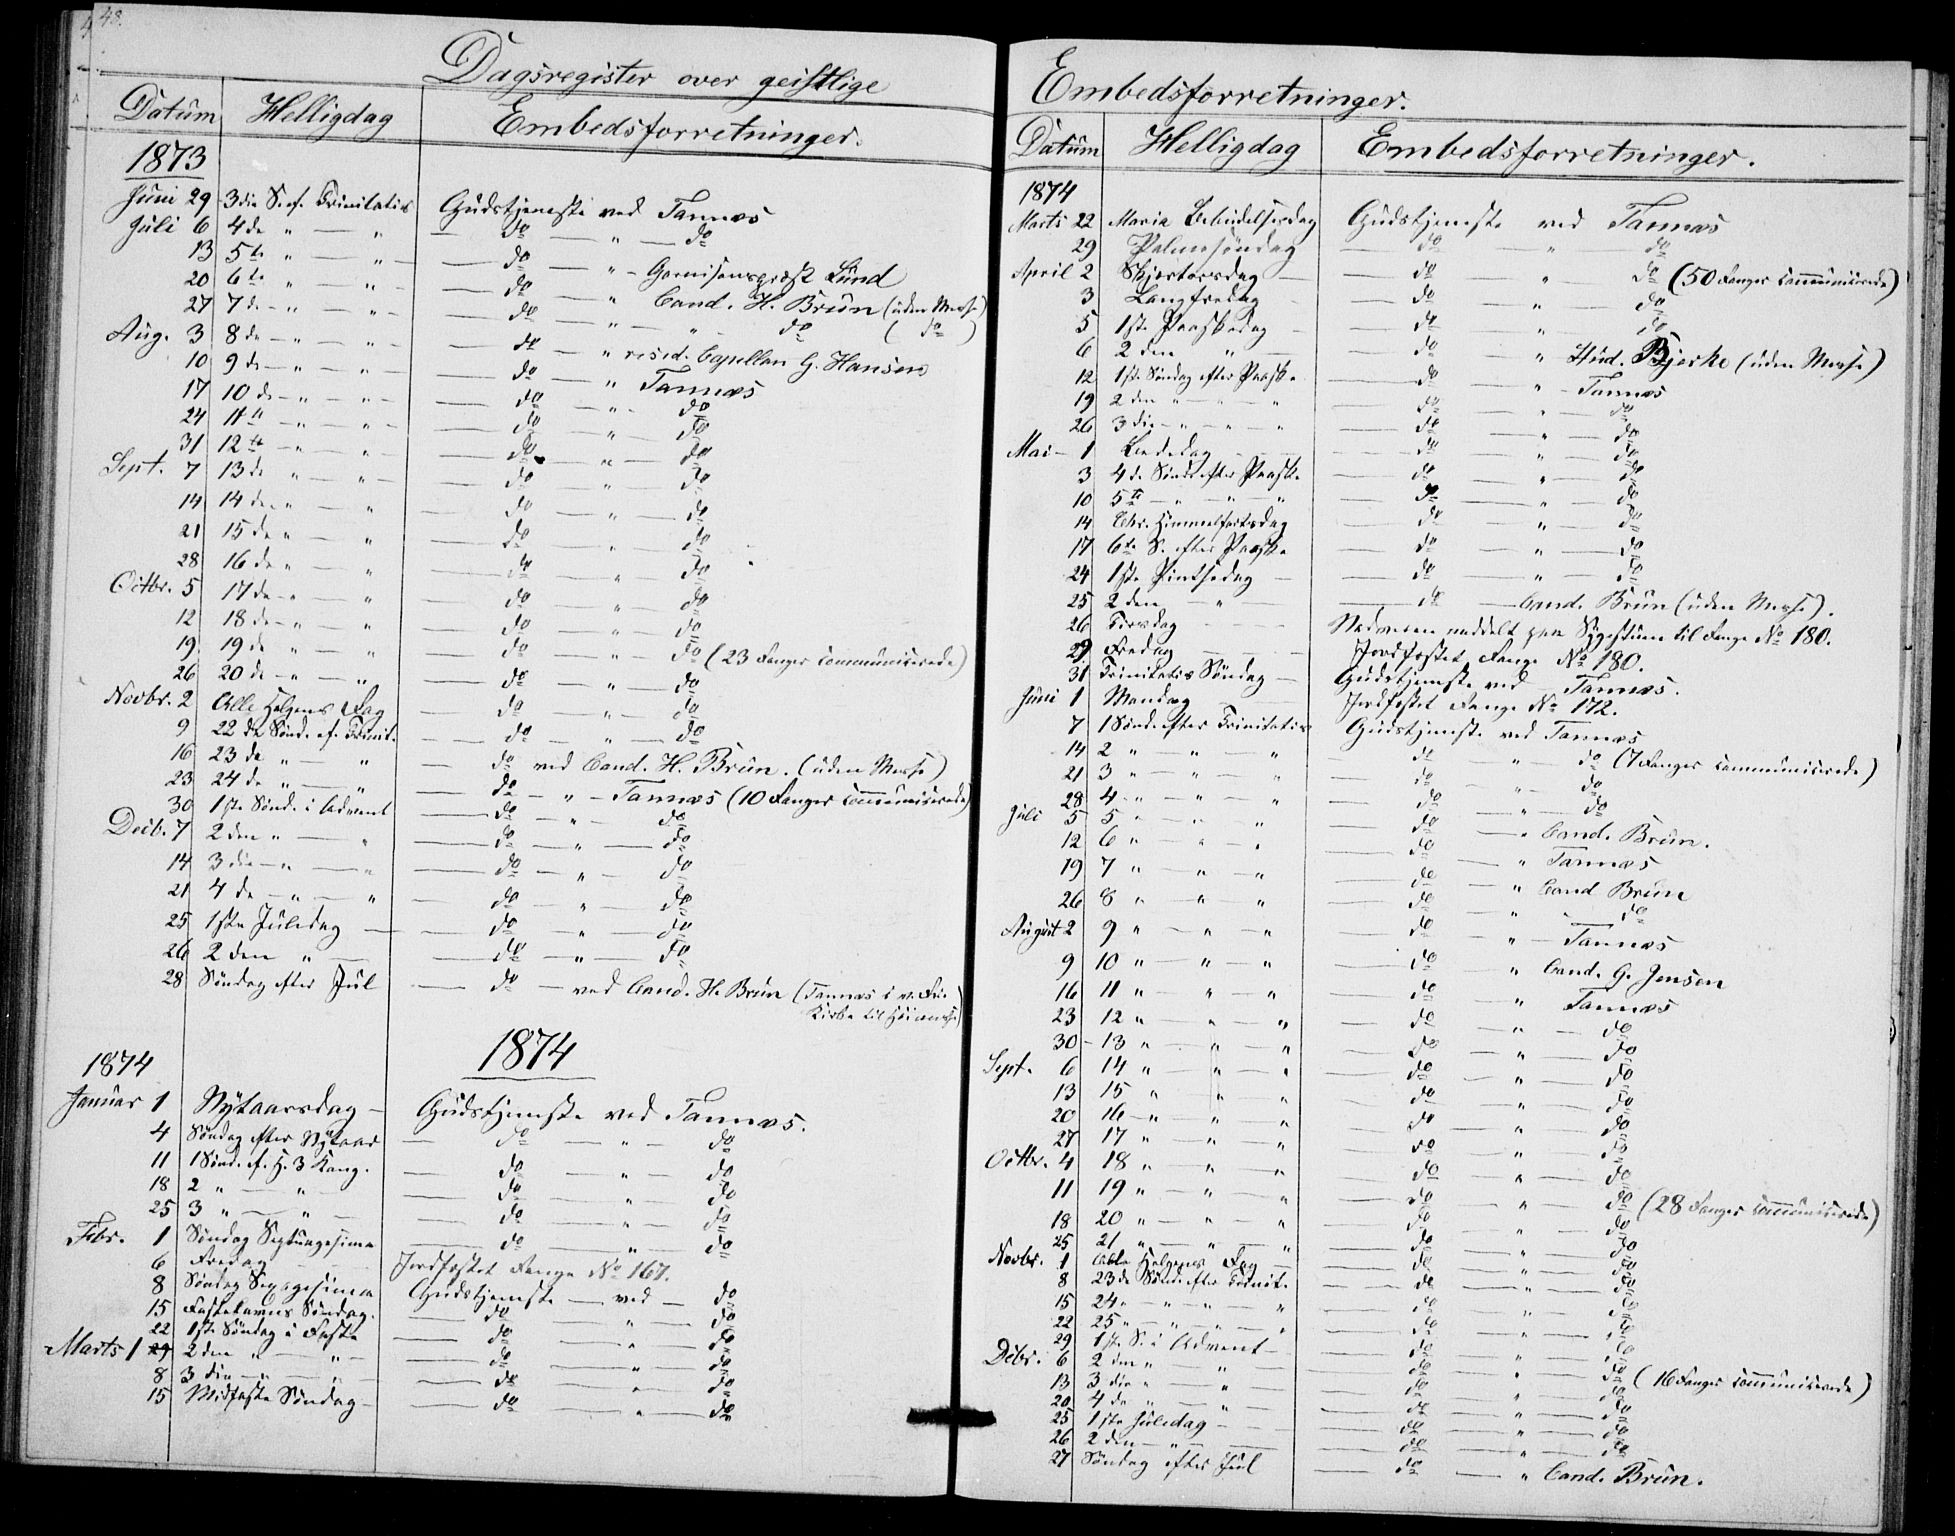 48.
Dagsregister over geistlige
Datum Helligdag Embedsforretninger.
1873
Juni 29 3die S. ef. Trinitatis Gudstjeneste ved Tannæs
Juli 6 4de " — " — do — " — do
13 5te " — " — do — " — Garnisonspræst Lund
20 6te " — " — do — " Cand. H. Brun (uden Messe)
27 7de — " — " — do — " — " do ( do )
Aug. 3 8de — " — " — do — " resid. Capellan G. Hansen
10 9de — " — " — do — " Tannæs
17 10de — " — " — do — " — do
24 11te — " — " — do — " — do
31 12te — " — " — do — " — do
Sept. 7 13de " — " — do — " — do
14 14de — " — " — do — " — do
21 15de " — " — do — " — do
28 16de " — " — do — " — do
Octbr. 5 17de — " — " — do — " — do
12 18de — " — " — do — " — do
19 19de " — " — do — " — do (23 Fanger communiserede)
26 20de — " — " — do — " — do
Novbr. 2 Alle Helgens Dag — do — " — do
9 22de Sønd. ef. Trinit. — do — " — do
16 23de " — " — do ved Cand. H. Brun. (uden Messe)
23 24de " — " — do — " — Tannæs (10 Fanger communiserede)
30 1ste Sønd. i Advent — do — " — do
Decb. 7 2den " — " — do — " — do
14 3die — " — " — do — " — do
21 4de — " — " — do — " — do
25 1ste Juledag — do — " — do
26 2den " — do — " — do
28 Søndag efter Jul — do — ved Cand. H. Brun (Tannæs i v. Frue
Kirke til Høimesse)
1874
1874
Januar 1 Nytaarsdag — Gudstjeneste ved Tannæs.
4 Søndag efter Nytaar — do — " — do
11 1 Sønd. ef. H. 3 Kong. — do — " — do
18 2 " — " — do — " — do
25 3 " — " — do — " — do
Febr. 1 Søndag Septuagesima — do — " — do
6 Fredag — Jordfæstet Fange No 167.
8 Søndag Sexagesima Gudstjeneste — ved — do
15 Fastelavns Søndag. — do — " — do
22 1ste Søndag i Faste — do — " — do
Marts 1 29 2den " — " — do — " — do
8 3die — " — " — do — " — do
15 Midfaste Søndag — do — " — do
Embedsforretninger.
Datum Helligdag Embedsforretninger.
1874
Marts 22 Mariæ Bebudelsesdag Gudstjeneste ved Tannæs
29 Palmesøndag — do — " — do
April 2 Skjærtorsdag — do — " — do (50 Fanger communiserede)
3 Langfredag — do — " — do
5 1ste Paaskedag — do — " — do
6 2den " — do — " Stud. Bjerke (uden Messe)
12 1ste Søndag efter Paaske — do — " — Tannæs
19 2den " — " — " — do — " — do
26 3die — " — " — " — do — " — do
Mai — 1 Bededag — do — " — do
3 4de Sønd. efter Paaske — do — " — do
10 5te — " — " — " — do — " — do
14 Chr. Himmelfartsdag — do — " — do
17 6te S. efter Paaske — do — " — do
24 1ste Pintsedag — do — " — do
25 2den — " — do — Cand. Brun (uden Messe).
26 Tirsdag — Nadveren meddelt paa Sygestuen til Fange No 180.
29 Fredag — Jordfæstet Fange No 180.
31 Trinitatis Søndag — Gudstjeneste ved Tannæs.
Juni 1 Mandag Jordfæstet Fange No 172.
7 1 Sønd. efter Trinitatis Gudstjeneste ved Tannæs
14 2 " — " — " — do — " — do (7 Fanger communiserede)
21 3 " — " — " — do — " — do
28 4 " — " — " — do — " — do
Juli 5 5 " — " — " — do — " Cand. Brun.
12 6 " — " — " — do — " Tannæs
19 7 " — " — " — do — " Cand Brun
26 8 " — " — " — do — " — do
August 2 9 " — " — " — do — " — Tannæs
9 10 " — " — " — do — " Cand. G. Jensen
16 11 " — " — " — do — " Tannæs
23 12 " — " — " — do — " — do
30 — 13 " — " — " — do — " — do
Sept. 6 14 " — " — " — do — " — do
13 15 " — " — " — do — " — do
20 16 — " — " — " — do — " — do
27 17 " — " — " — do — " — do
Octbr. 4 18 " — " — " — do — " — do
11 19 " — " — " — do — " — do (28 Fanger communiserede)
18 20 " — " — " — do — " — do
25 21 " — " — " — do — " — do
Novbr. 1 Alle Helgens Dag — do — " — do
8 23de Sønd. efter Trinit. — do — " — do
15 24 " — " — " — do — " — do
22 25 " — " — " — do — " — do
29 1ste S. i Advent — do — " — do
Decbr. 6 2den " — " — do — " — do (16 Fanger communiserede)
13 3die " — " — do — " — do
20 4de " — " — do — " — do
25 1ste Juledag — do — " — do
26 2den — " — do — " — do
27 Søndag efter Jul — do — " Cand. Brun.